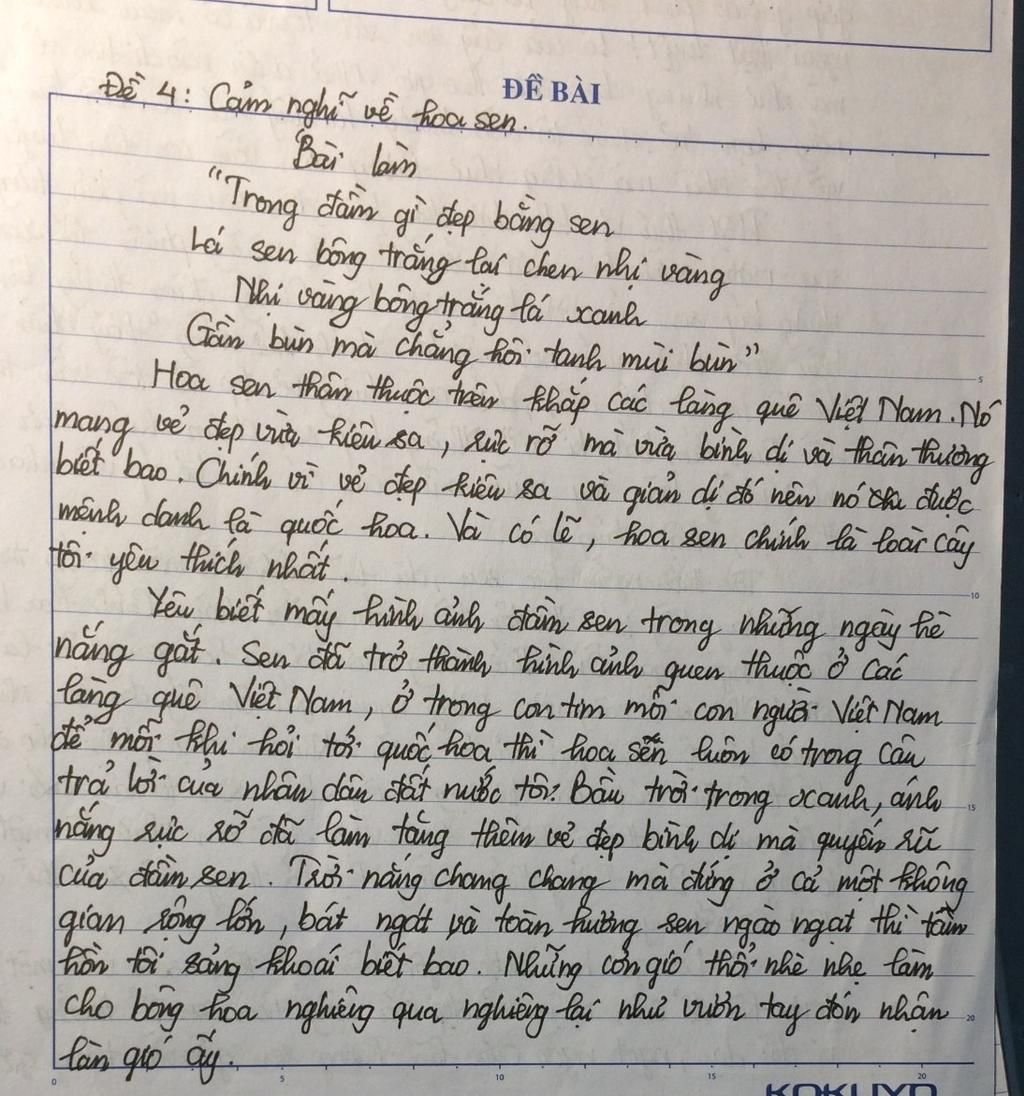 ĐỀ BÀI
Đề 4: Cảm nghĩ về hoa sen.
Bài làm
"Trong đầm gì đẹp bằng sen
Lá sen bông trắng lại chen nhị vàng
Nhị vàng bông trắng lá xanh
Gần bùn mà chẳng hôi tanh mùi bùn"
Hoa sen thân thuộc trên khắp các làng quê Việt Nam. Nó
mang vẻ đẹp vừa kiêu sa, rực rỡ mà vừa bình dị và thân thương
biết bao. Chính vì vẻ đẹp kiêu sa và giản dị đó nên nó được
mệnh danh là quốc hoa. Và có lẽ, hoa sen chính là loài cây
tôi yêu thích nhất.
Yêu biết mấy hình ảnh đầm sen trong những ngày hè
nắng gắt. Sen đã trở thành hình ảnh quen thuộc ở các
làng quê Việt Nam, ở trong con tim mỗi con người Việt Nam
để mỗi khi hỏi tới quốc hoa thì hoa sen luôn có trong câu
trả lời của nhân dân đất nước tôi. Bầu trời trong xanh, ánh
nắng rực rỡ đã làm tăng thêm vẻ đẹp bình dị mà quyến rũ
của đầm sen. Trời nắng chang chang mà đứng ở cả một không
gian rộng lớn, bát ngát và toàn hương sen ngào ngạt thì tâm
hồn tôi sảng khoái biết bao. Những cơn gió thổi nhè nhẹ làm
cho bông hoa nghiêng qua nghiêng lại như vươn tay đón nhận
làn gió ấy.
5
10
15
20
0 5 10 15 20
KOKUYO